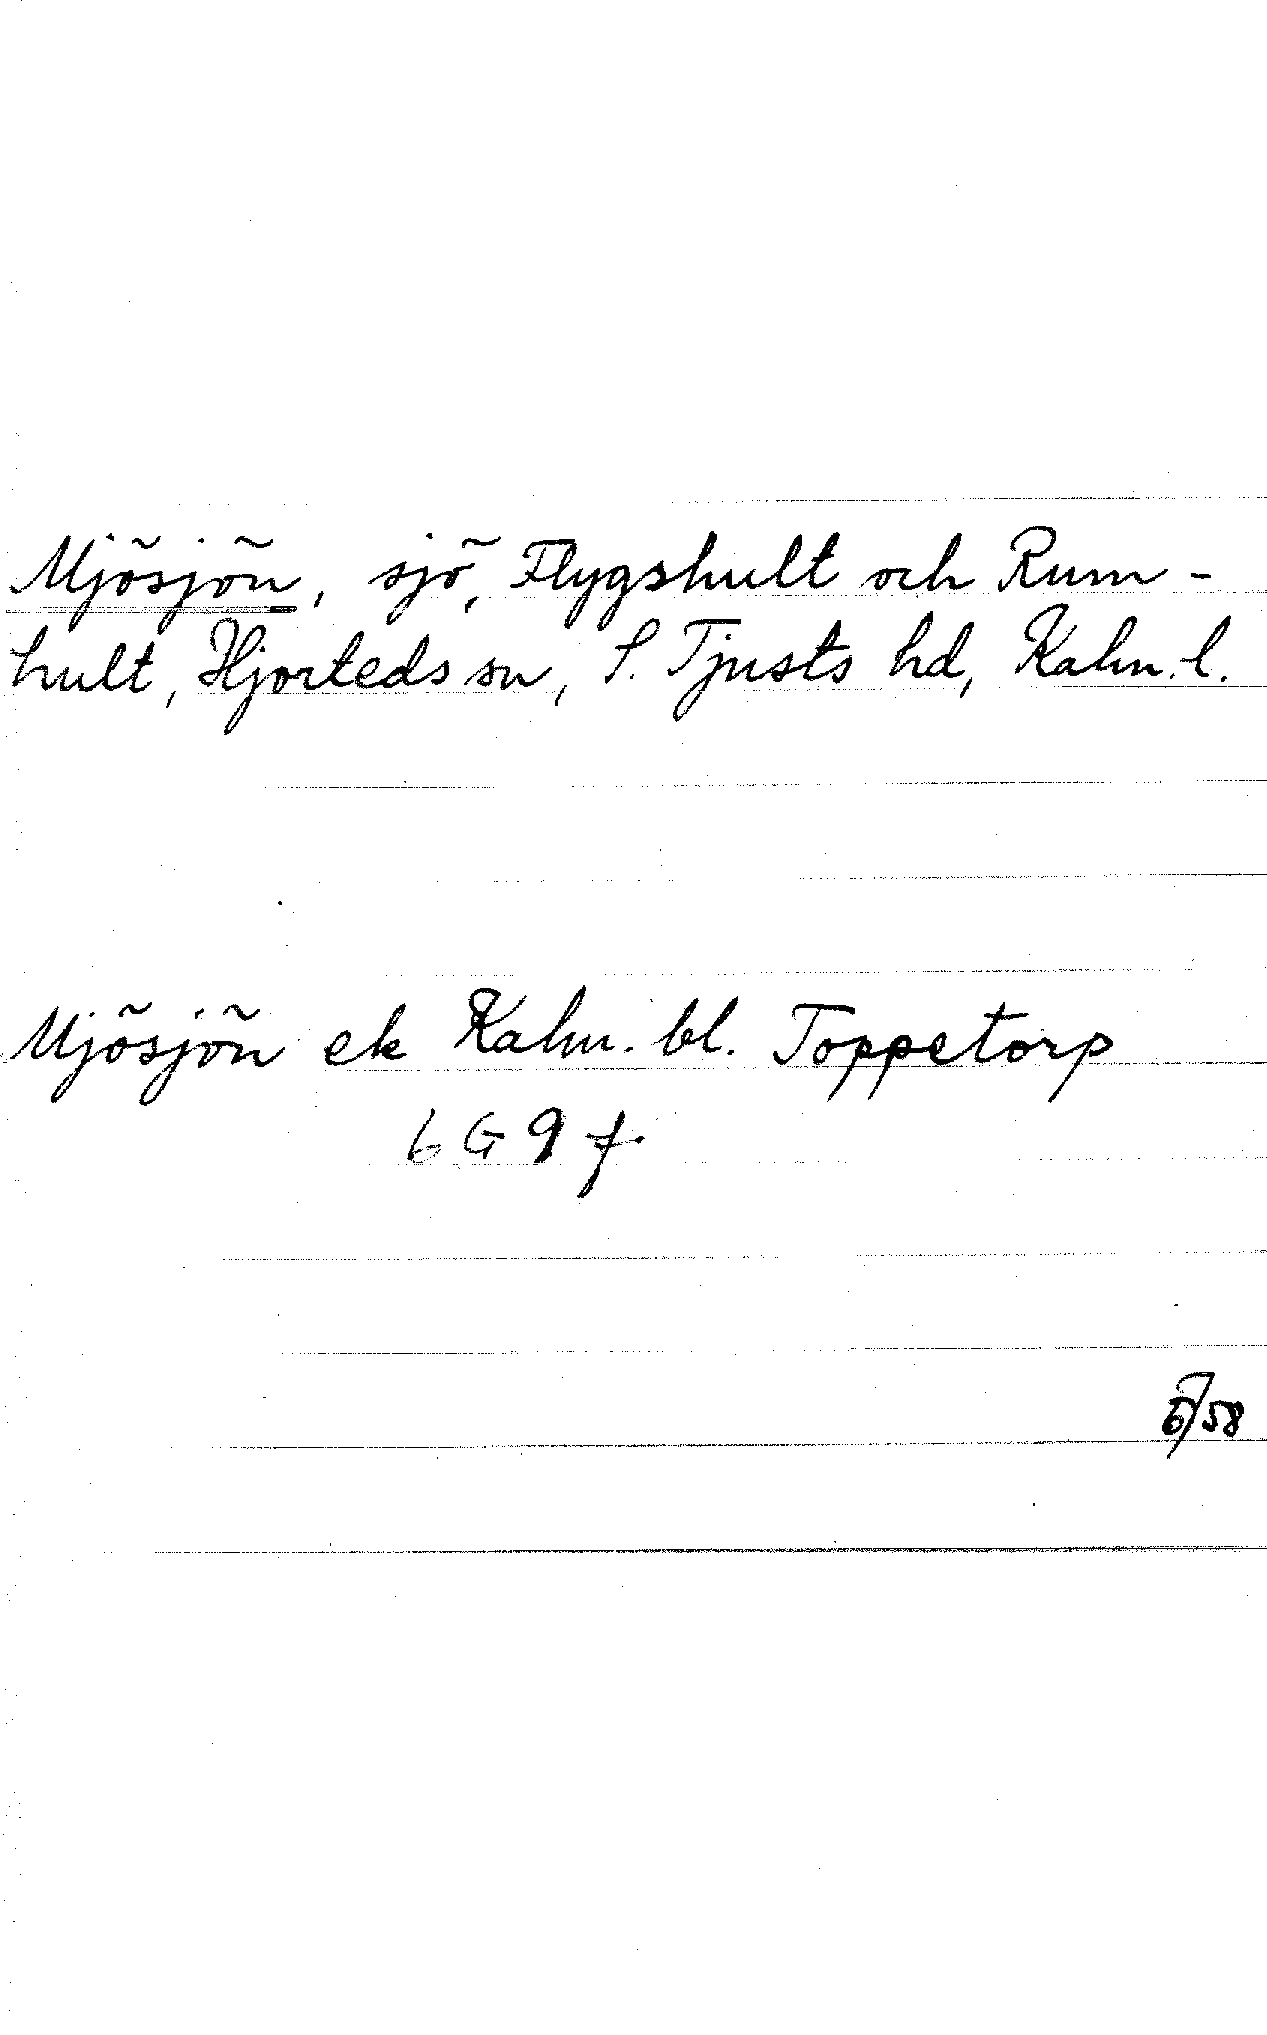 Mjösjön, sjö, Flygshult och Rum-
hult, Hjorteds sn, S. Tjusts hd, Kalm. l.
Mjösjön ek Kalm. bl. Toppetorp
6 G 9 f.